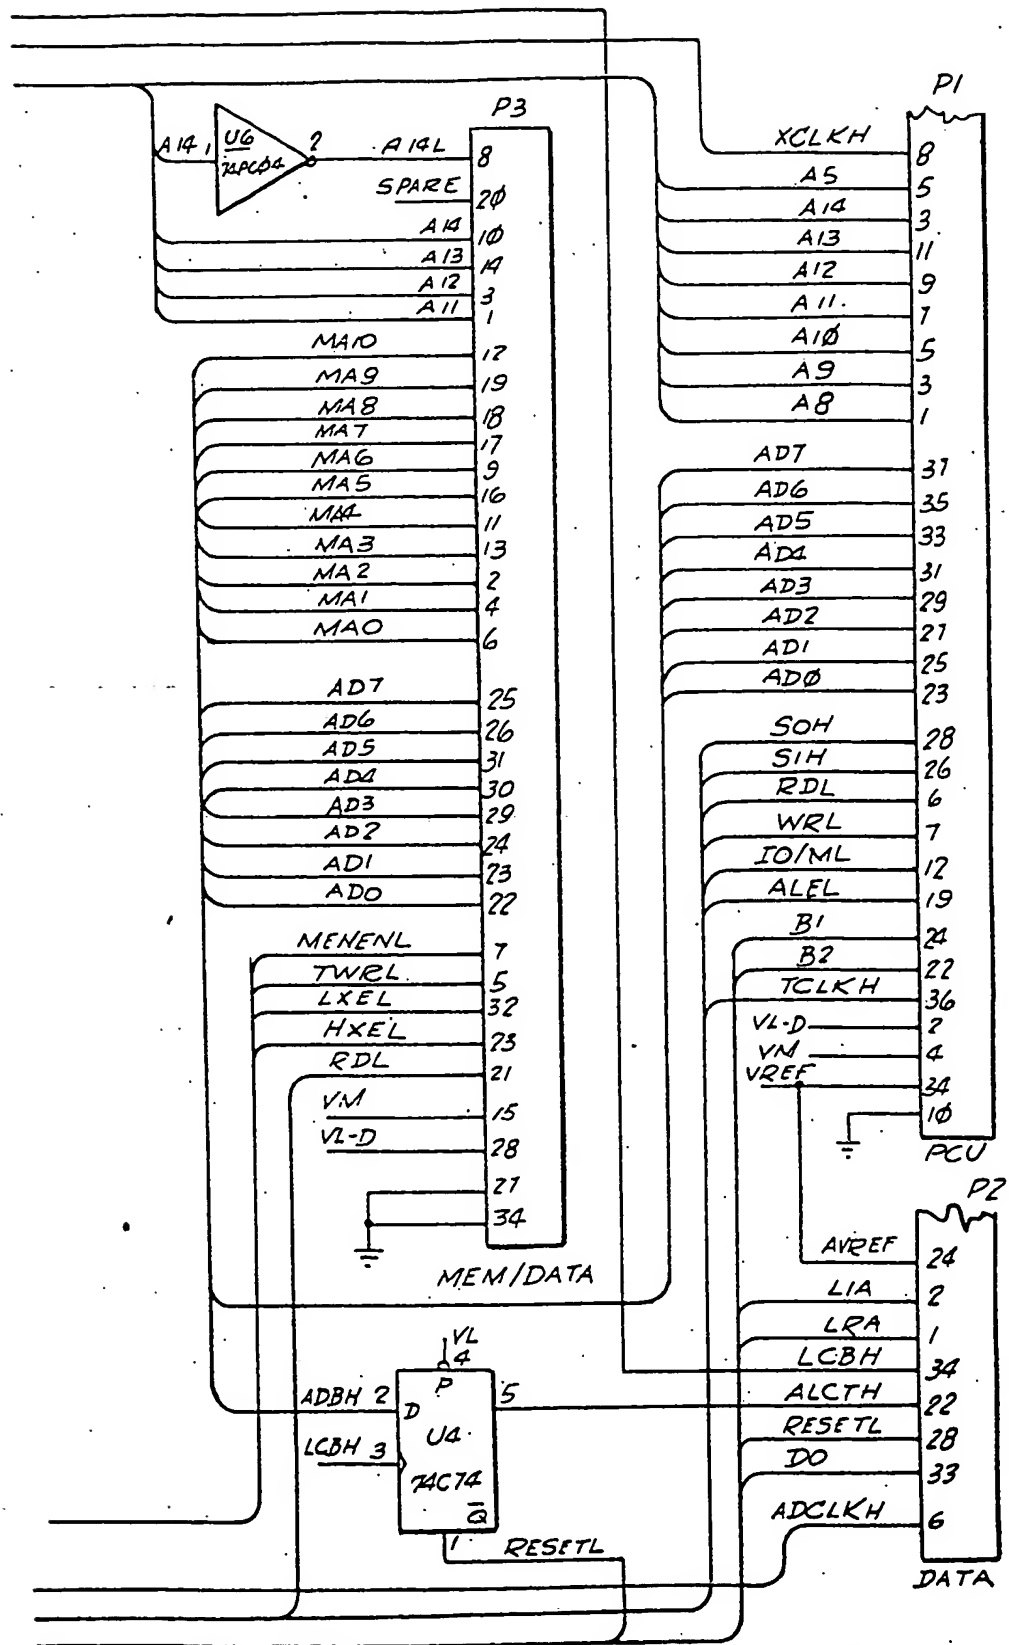 P3
A14 1 U6 74PCØ4 2 A14L 8
SPARE 2Ø
A14 1Ø
A13 14
A12 3
A11 1
MA10 12
MA9 19
MA8 18
MA7 17
MA6 9
MA5 16
MA4 11
MA3 13
MA2 2
MA1 4
MA0 6
AD7 25
AD6 26
AD5 31
AD4 30
AD3 29
AD2 24
AD1 23
AD0 22
MENENL 7
TWRL 5
LXEL 32
HXEL 23
RDL 21
VM 15
VL-D 28
27
34
MEM/DATA
P1
XCLKH 8
A5 5
A14 3
A13 11
A12 9
A11. 7
A1Ø 5
A9 3
A8 1
AD7 37
AD6 35
AD5 33
AD4 31
AD3 29
AD2 27
AD1 25
ADØ 23
SOH 28
S1H 26
RDL 6
WRL 7
IO/ML 12
ALEL 19
B1 24
B2 22
TCLKH 36
VL-D 2
VM 4
VREF 34
1Ø
PCU
P2
AVREF 24
LIA 2
LRA 1
LCBH 34
ALCTH 22
RESETL 28
DO 33
ADCLKH 6
DATA
VL
4
P
ADBH 2 D 5
U4
LCBH 3
74C74
Q̅
1 RESETL